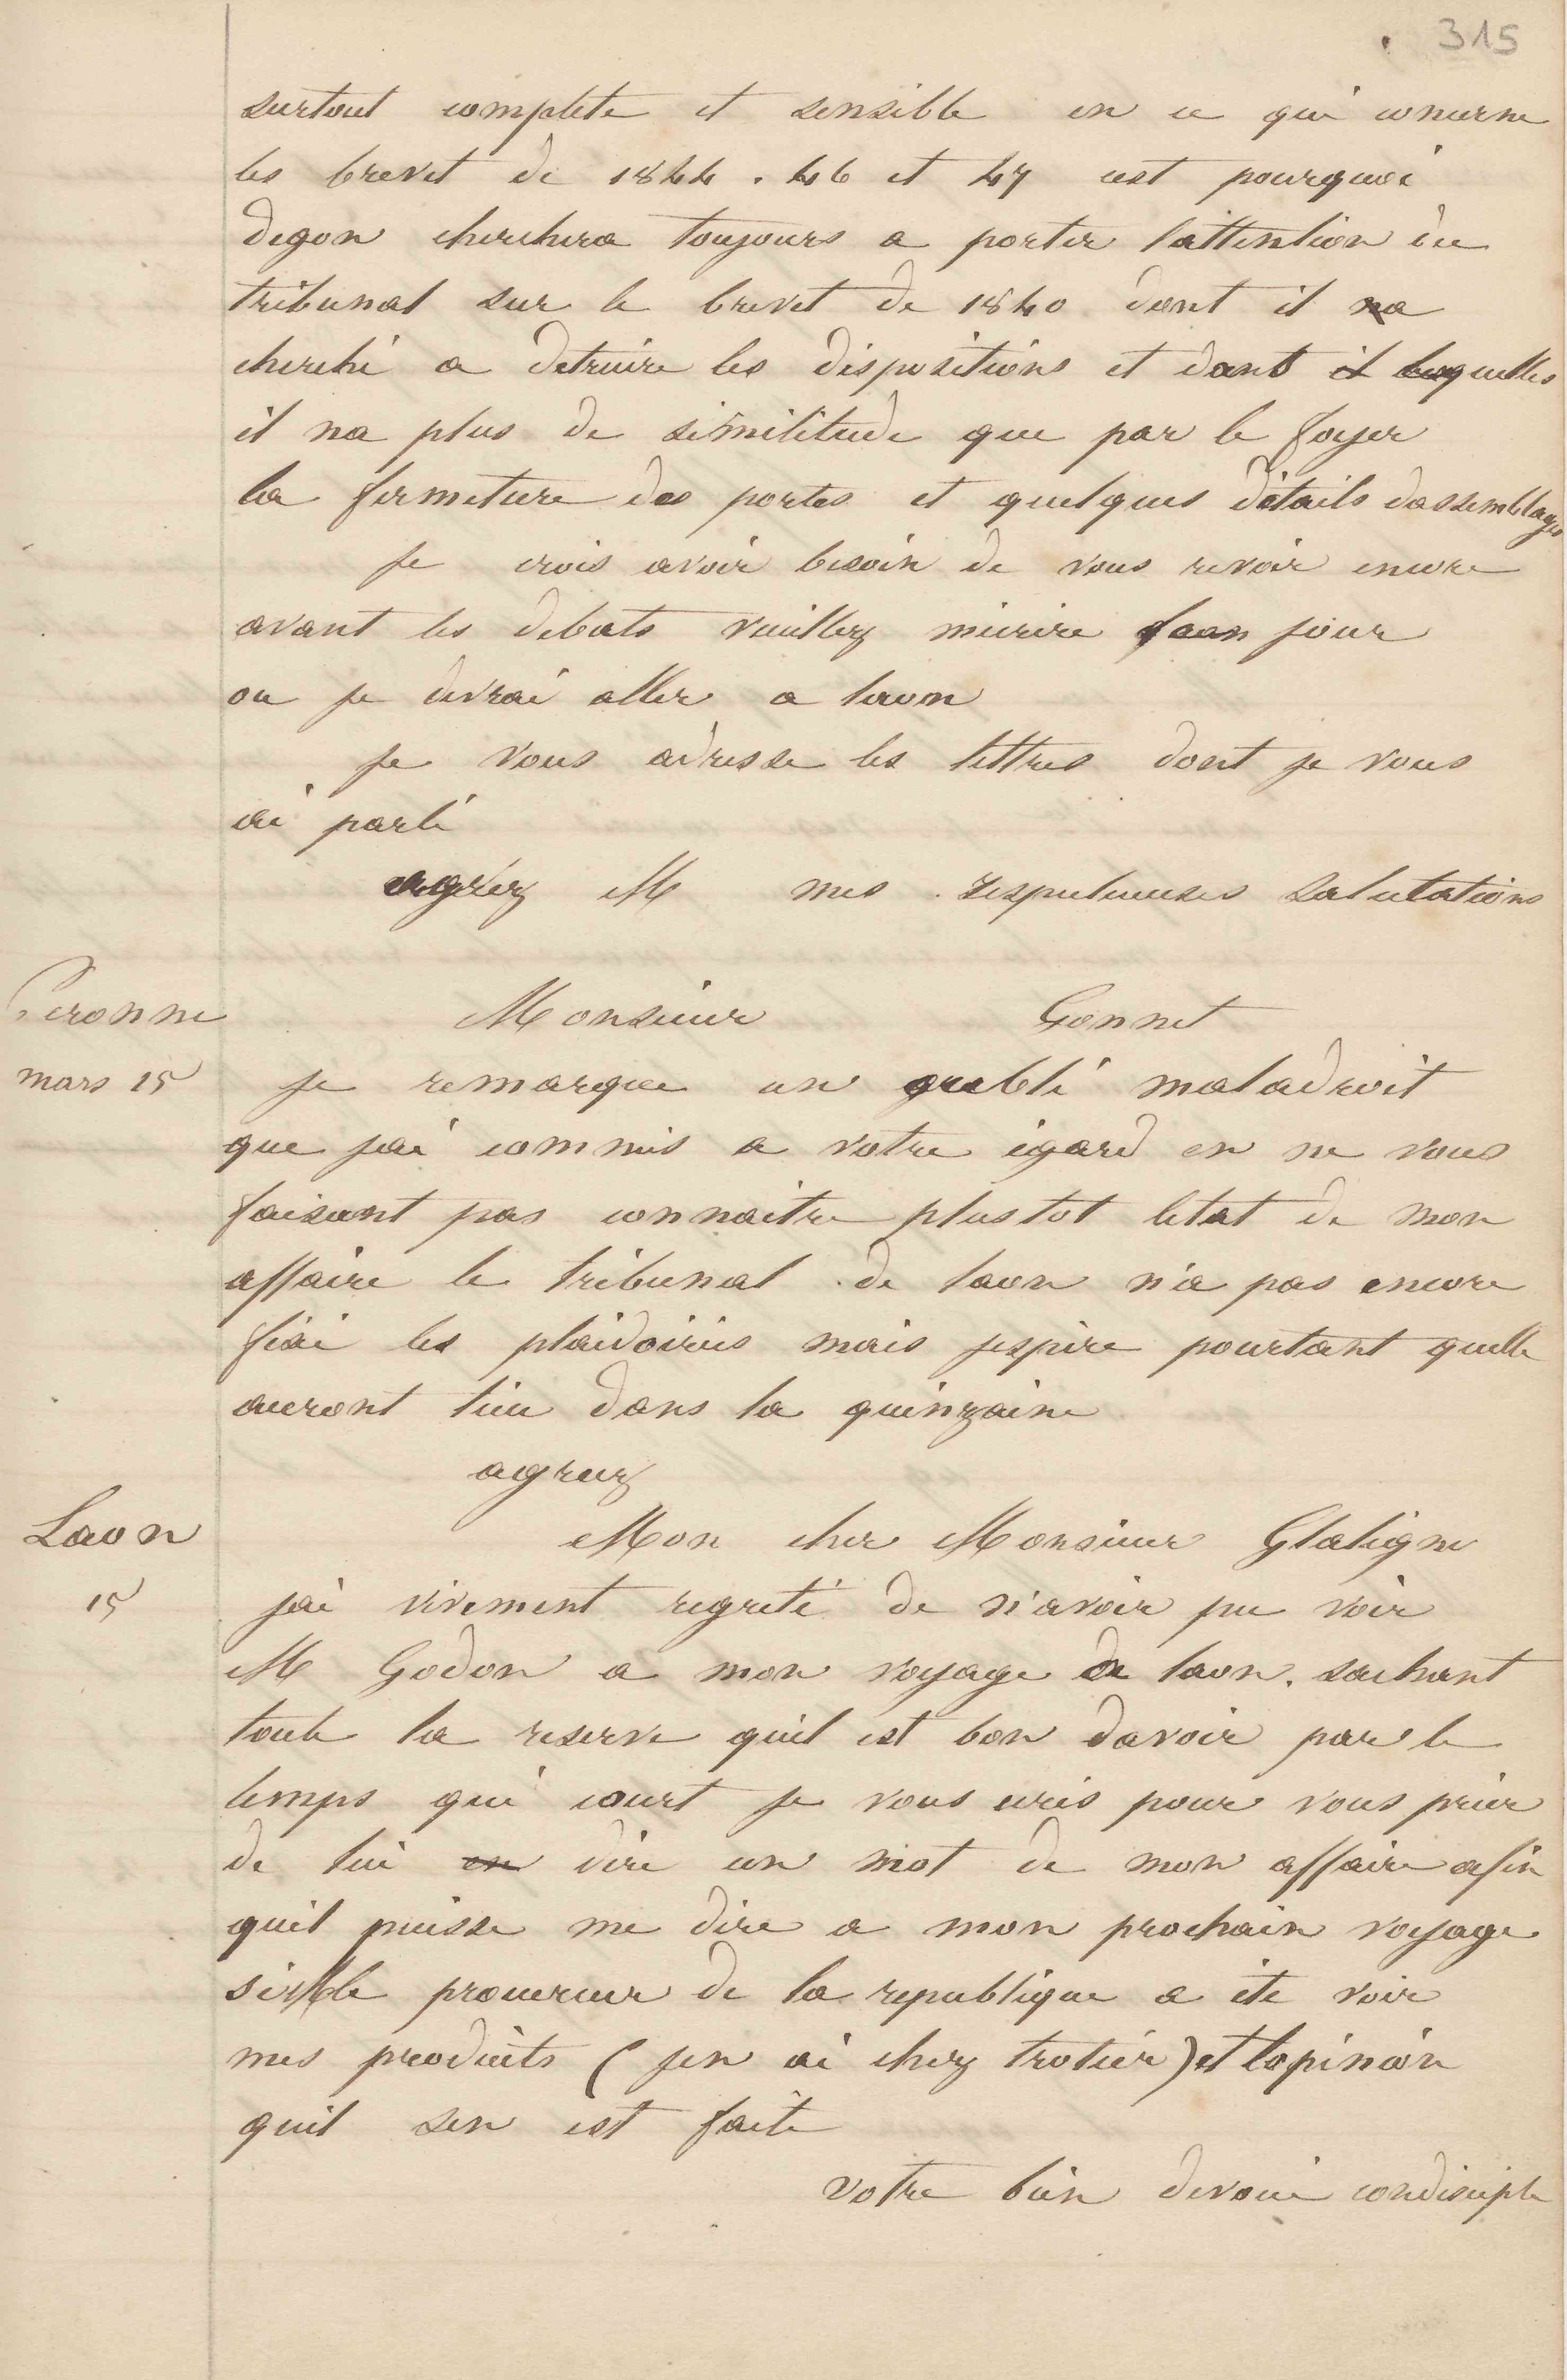 315
surtout complete et sensible en ce qui concerne
les brevet de 1844. 46 et 47 cest pourquoi
degon cherchera toujours a porter lattention du
tribunal sur le brevet de 1840 dont il na
cherché a detruire les dispositions et dont il lesquelles
il na plus de similitude que par le foyer
la fermeture des portes et quelques détails dassemblages
je crois avoir besoin de vous revoir encore
avant les debats veuillez mécrire jour
ou je devrai aller a laon
je vous adresse les lettres dont je vous
ai parlé
agréez M mes respectueuses salutations
Peronne
Monsieur Gonnet
mars 15
je remarque un oublié maladroit
que jai commis a votre égard en ne vous
faisant pas connaitre plustot letat de mon
affaire le tribunal de laon n'a pas encore
fixé les plaidoiries mais jespère pourtant quelle
auront lieu dans la quinzaine
agreez
Laon
Mon cher Monsieur Glatigne
15
jai vivement regreté de n'avoir pu voir
M Godon a mon voyage de laon. sachant
toute la reserve quil est bon davoir par le
temps qui court je vous ecris pour vous prier
de lui en dire un mot de mon affaire afin
quil puisse me dire a mon prochain voyage
si le procureur de la republique a été voir
mes produits (jen ai chez trotier) et lopinion
quil sen est faite
votre bien devoué condisciple